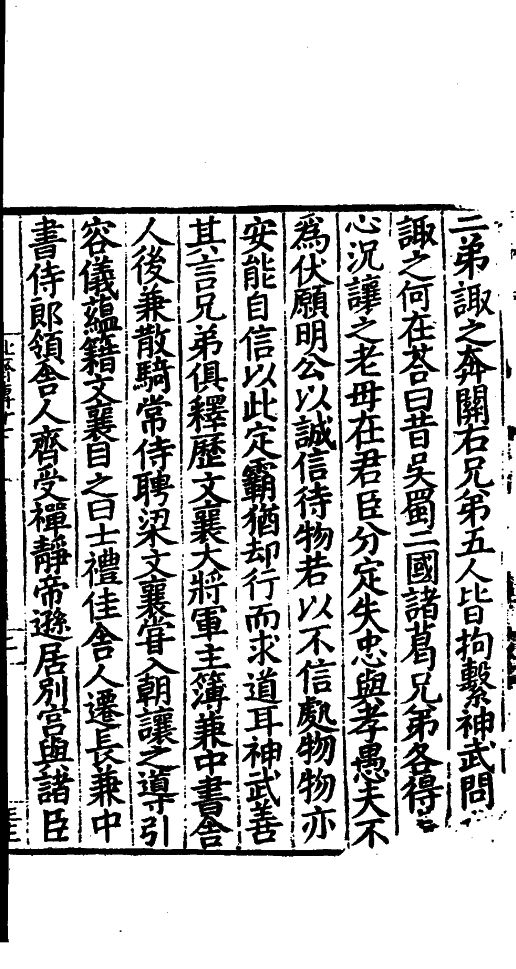 二弟諏之奔關右兄弟五人皆拘繫神武問
諏之何在荅曰昔吴蜀二國諸葛兄弟各得
心況讓之老母在君臣分定失忠與孝愚夫不
爲伏願明公以誠信待物若以不信處物物亦
安能自信以此定霸猶却行而求道耳神武善
其言兄弟俱釋歷文襄大將軍主簿兼中書舍
人後兼散騎常侍聘梁文襄甞入朝讓之導引
容儀蘊籍文襄目之曰士禮佳舍人遷長兼中
書侍郎領舍人齊受禪靜帝遜居别宫與諸臣